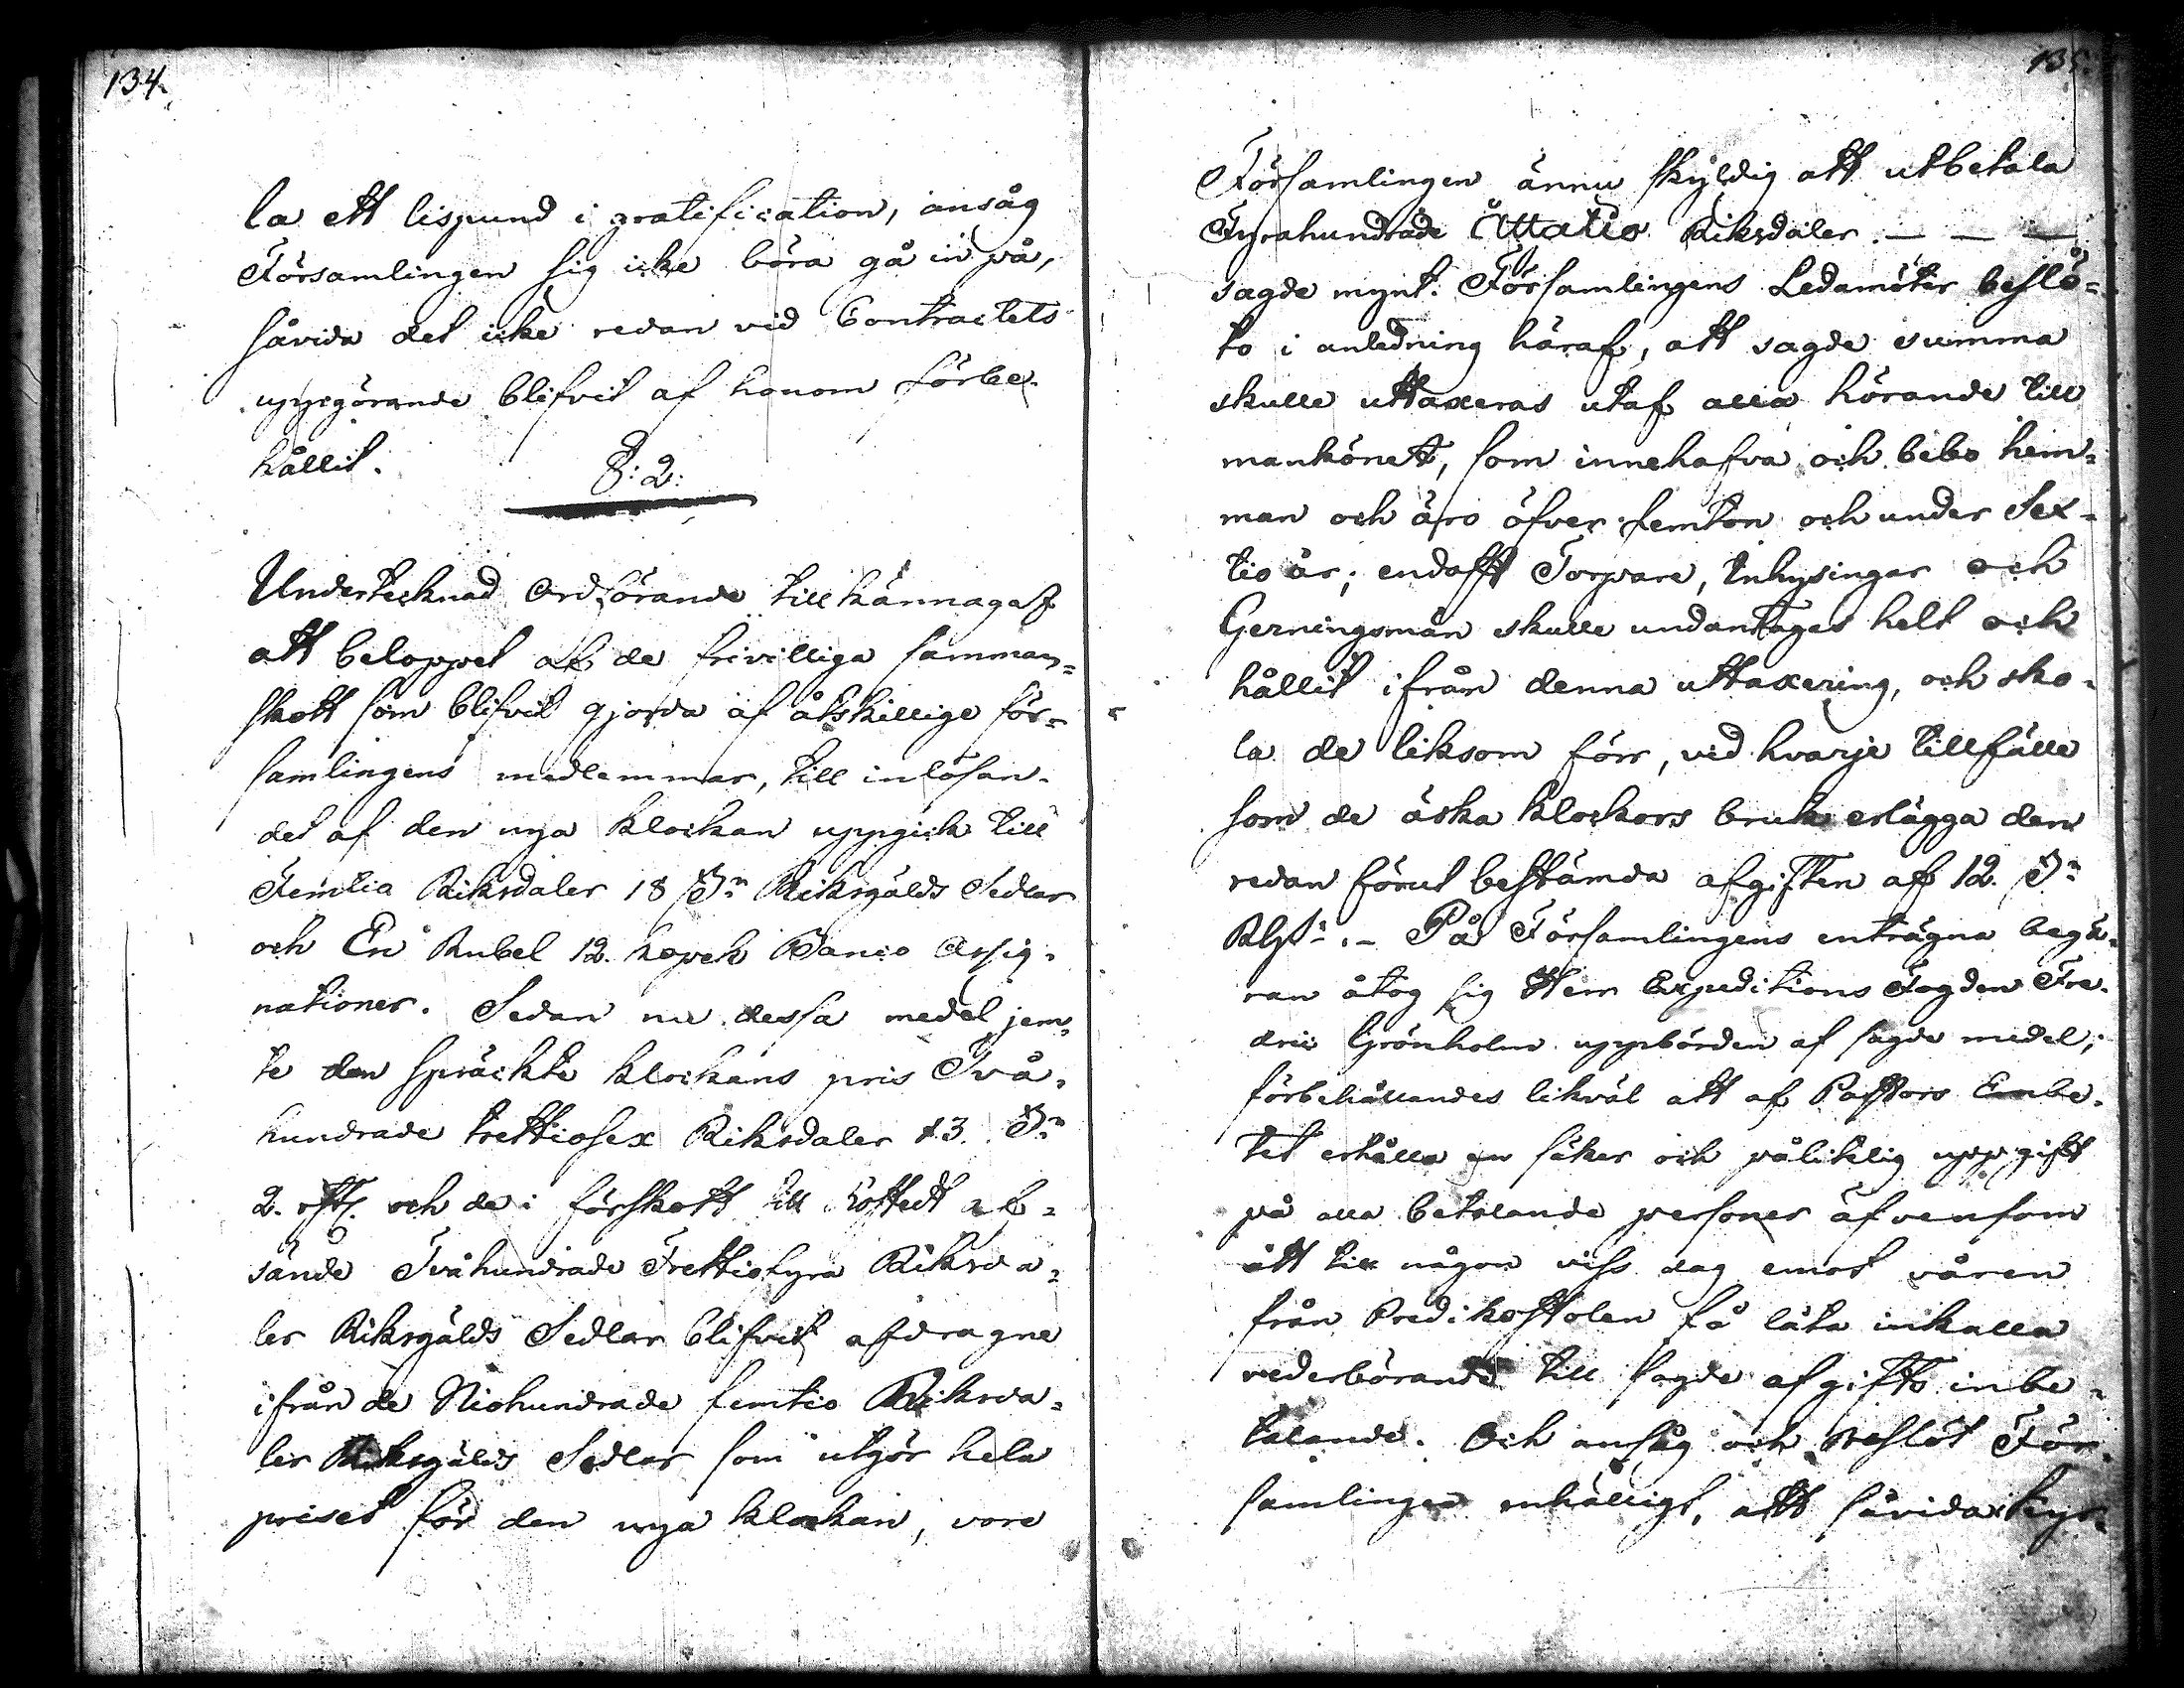 134.
la ett lispund i gratification, ansåg
Församlingen sig icke böra gå in på,
såvida det icke redan vid Contractets
uppgörande blifvit af honom förbe-
hållit.
§: 2:
Undertecknad Ordförande tillkännagaf
att beloppet af de frivilliga samman-
skott som blifvit gjorda af åtskillige för-
samlingens medlemmar, till inlösan-
det af den nya klockan uppgick till
Femtio Riksdaler 18 Sr Riksgälds Sedlar
och En Rubel 12. kopek Banco Assig-
nationer. Sedan nu dessa medel jem-
te den spräckte klockans pris Två-
hundrade trettiosex Riksdaler 13. Sr
2. och de i förskott till af-
sände Tvåhundrade Trettiofyra Riksda-
ler Riksgälds Sedlar blifvit afdragne
ifrån de Niohundrade femtio Riksda-
ler Riksgälds Sedlar som utgör hela
priset för den nya klockan, vore
135.
Församlingen ännu skyldig att utbetala
Fyrahundrade Åttatio Riksdaler. — — —
sagde mynt. Församlingens Ledamöter beslö-
to i anledning häraf, att sagde summa
skulle uttaxeras utaf alla hörande till
mankönet, som innehafva och bebo hem-
man och äro öfver femton och under Sex-
tio år; endast Torpare, Inhysingar och
Gerningsmän skulle undantages helt och
hållit ifrån denna uttaxering, och sko-
la de liksom förr, vid hvarje tillfälle
som de äska klockors bruk erlägga den
redan förut bestämda afgiften af 12. Sr
Rgs. – På Församlingens enträgna begä-
ran åtog sig Herr Expeditions Fogden Fre-
dric Grönholm uppbörden af sagde medel;
förbehållandes likväl att af Pastors Embe-
tet erhålla en säker och pålitelig uppgift
på alla betalande personer äfvensom
att till någon viss dag emot våren
från Predikostolen få låta inkalla
vederbörande till sagde afgifts inbe-
talande. Och ansåg och beslöt För-
samlingen enhälligt, att såvida kyr-